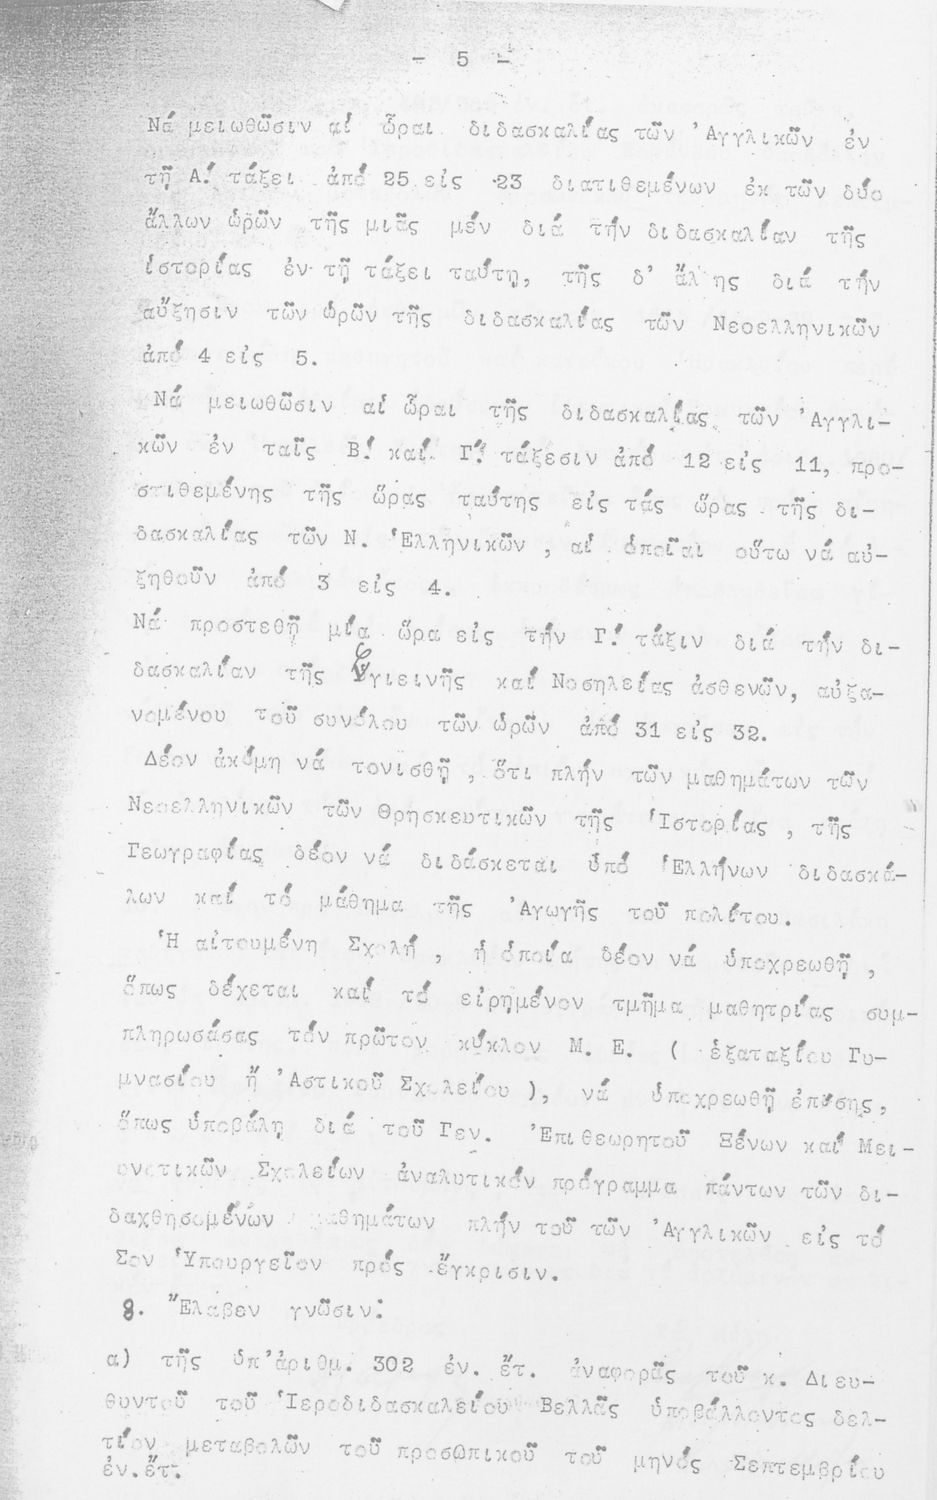 - 5 -
Νά μειωθῶσιν αἱ ὧραι διδασκαλίας τῶν Ἀγγλικῶν ἐν
τῇ Α΄ τάξει ἀπό 25 εἰς 23 διατιθεμένων ἐκ τῶν δύο
ἄλλων ὡρῶν τῆς μιᾶς μέν διά τήν διδασκαλίαν τῆς
ἱστορίας ἐν τῇ τάξει ταύτῃ, τῆς δ' ἄλ ης διά τήν
αὔξησιν τῶν ὡρῶν τῆς διδασκαλίας τῶν Νεοελληνικῶν
ἀπό 4 εἰς 5.
Νά μειωθῶσιν αἱ ὧραι τῆς διδασκαλίας τῶν Ἀγγλι-
κῶν ἐν ταῖς Β΄ καί Γ΄ τάξεσιν ἀπό 12 εἰς 11, προ-
στιθεμένης τῆς ὥρας ταύτης εἰς τάς ὥρας τῆς δι-
δασκαλίας τῶν Ν. Ἑλληνικῶν, αἱ ὁποῖαι οὕτω νά αὐ-
ξηθοῦν ἀπό 3 εἰς 4.
Νά προστεθῇ μία ὥρα εἰς τήν Γ΄ τάξιν διά τήν δι-
δασκαλίαν τῆς Ὑγιεινῆς καί Νοσηλείας ἀσθενῶν, αὐξα-
νομένου τοῦ συνόλου τῶν ὡρῶν ἀπό 31 εἰς 32.
Δέον ἀκόμη νά τονισθῇ, ὅτι πλήν τῶν μαθημάτων τῶν
Νεοελληνικῶν τῶν Θρησκευτικῶν τῆς Ἱστορίας, τῆς
Γεωγραφίας δέον νά διδάσκεται ὑπό Ἑλλήνων διδασκά-
λων καί τό μάθημα τῆς Ἀγωγῆς τοῦ πολίτου.
Ἡ αἰτουμένη Σχολή, ἡ ὁποία δέον νά ὑποχρεωθῇ,
ὅπως δέχεται καί τό εἰρημένον τμῆμα μαθητρίας συμ-
πληρωσάσας τόν πρῶτον κύκλον Μ. Ε. ( ἑξαταξίου Γυ-
μνασίου ἤ Ἀστικοῦ Σχολείου ), νά ὑποχρεωθῇ ἐπίσης,
ὅπως ὑποβάλῃ διά τοῦ Γεν. Ἐπιθεωρητοῦ Ξένων καί Μει-
ονοτικῶν Σχολείων ἀναλυτικόν πρόγραμμα πάντων τῶν δι-
δαχθησομένων μαθημάτων πλήν τοῦ τῶν Ἀγγλικῶν εἰς τό
Σον Ὑπουργεῖον πρός ἔγκρισιν.
8. Ἔλαβεν γνῶσιν:
α) τῆς ὑπ'ἀριθμ. 302 ἐν. ἔτ. ἀναφορᾶς τοῦ κ. Διευ-
θυντοῦ τοῦ Ἱεροδιδασκαλείου Βελλᾶς ὑποβάλλοντος δελ-
τίον μεταβολῶν τοῦ προσωπικοῦ τοῦ μηνός Σεπτεμβρίου
ἐν.ἔτ.